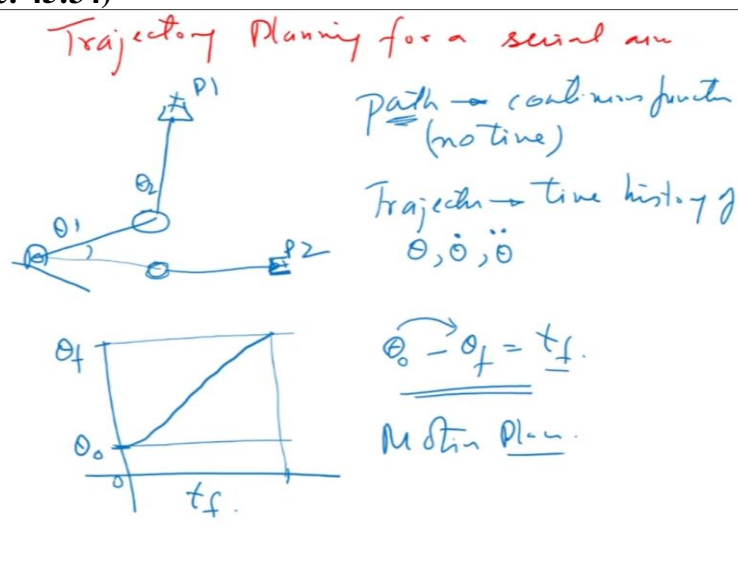 Trajectory Planning for a serial arm
P1
Path → continuous function
(no time)
θ2
θ1
Trajectory → time history of
θ, θ̇, θ̈
P2
θf
θ0 – θf = tf.
θ0
Motion Plan.
0
tf.